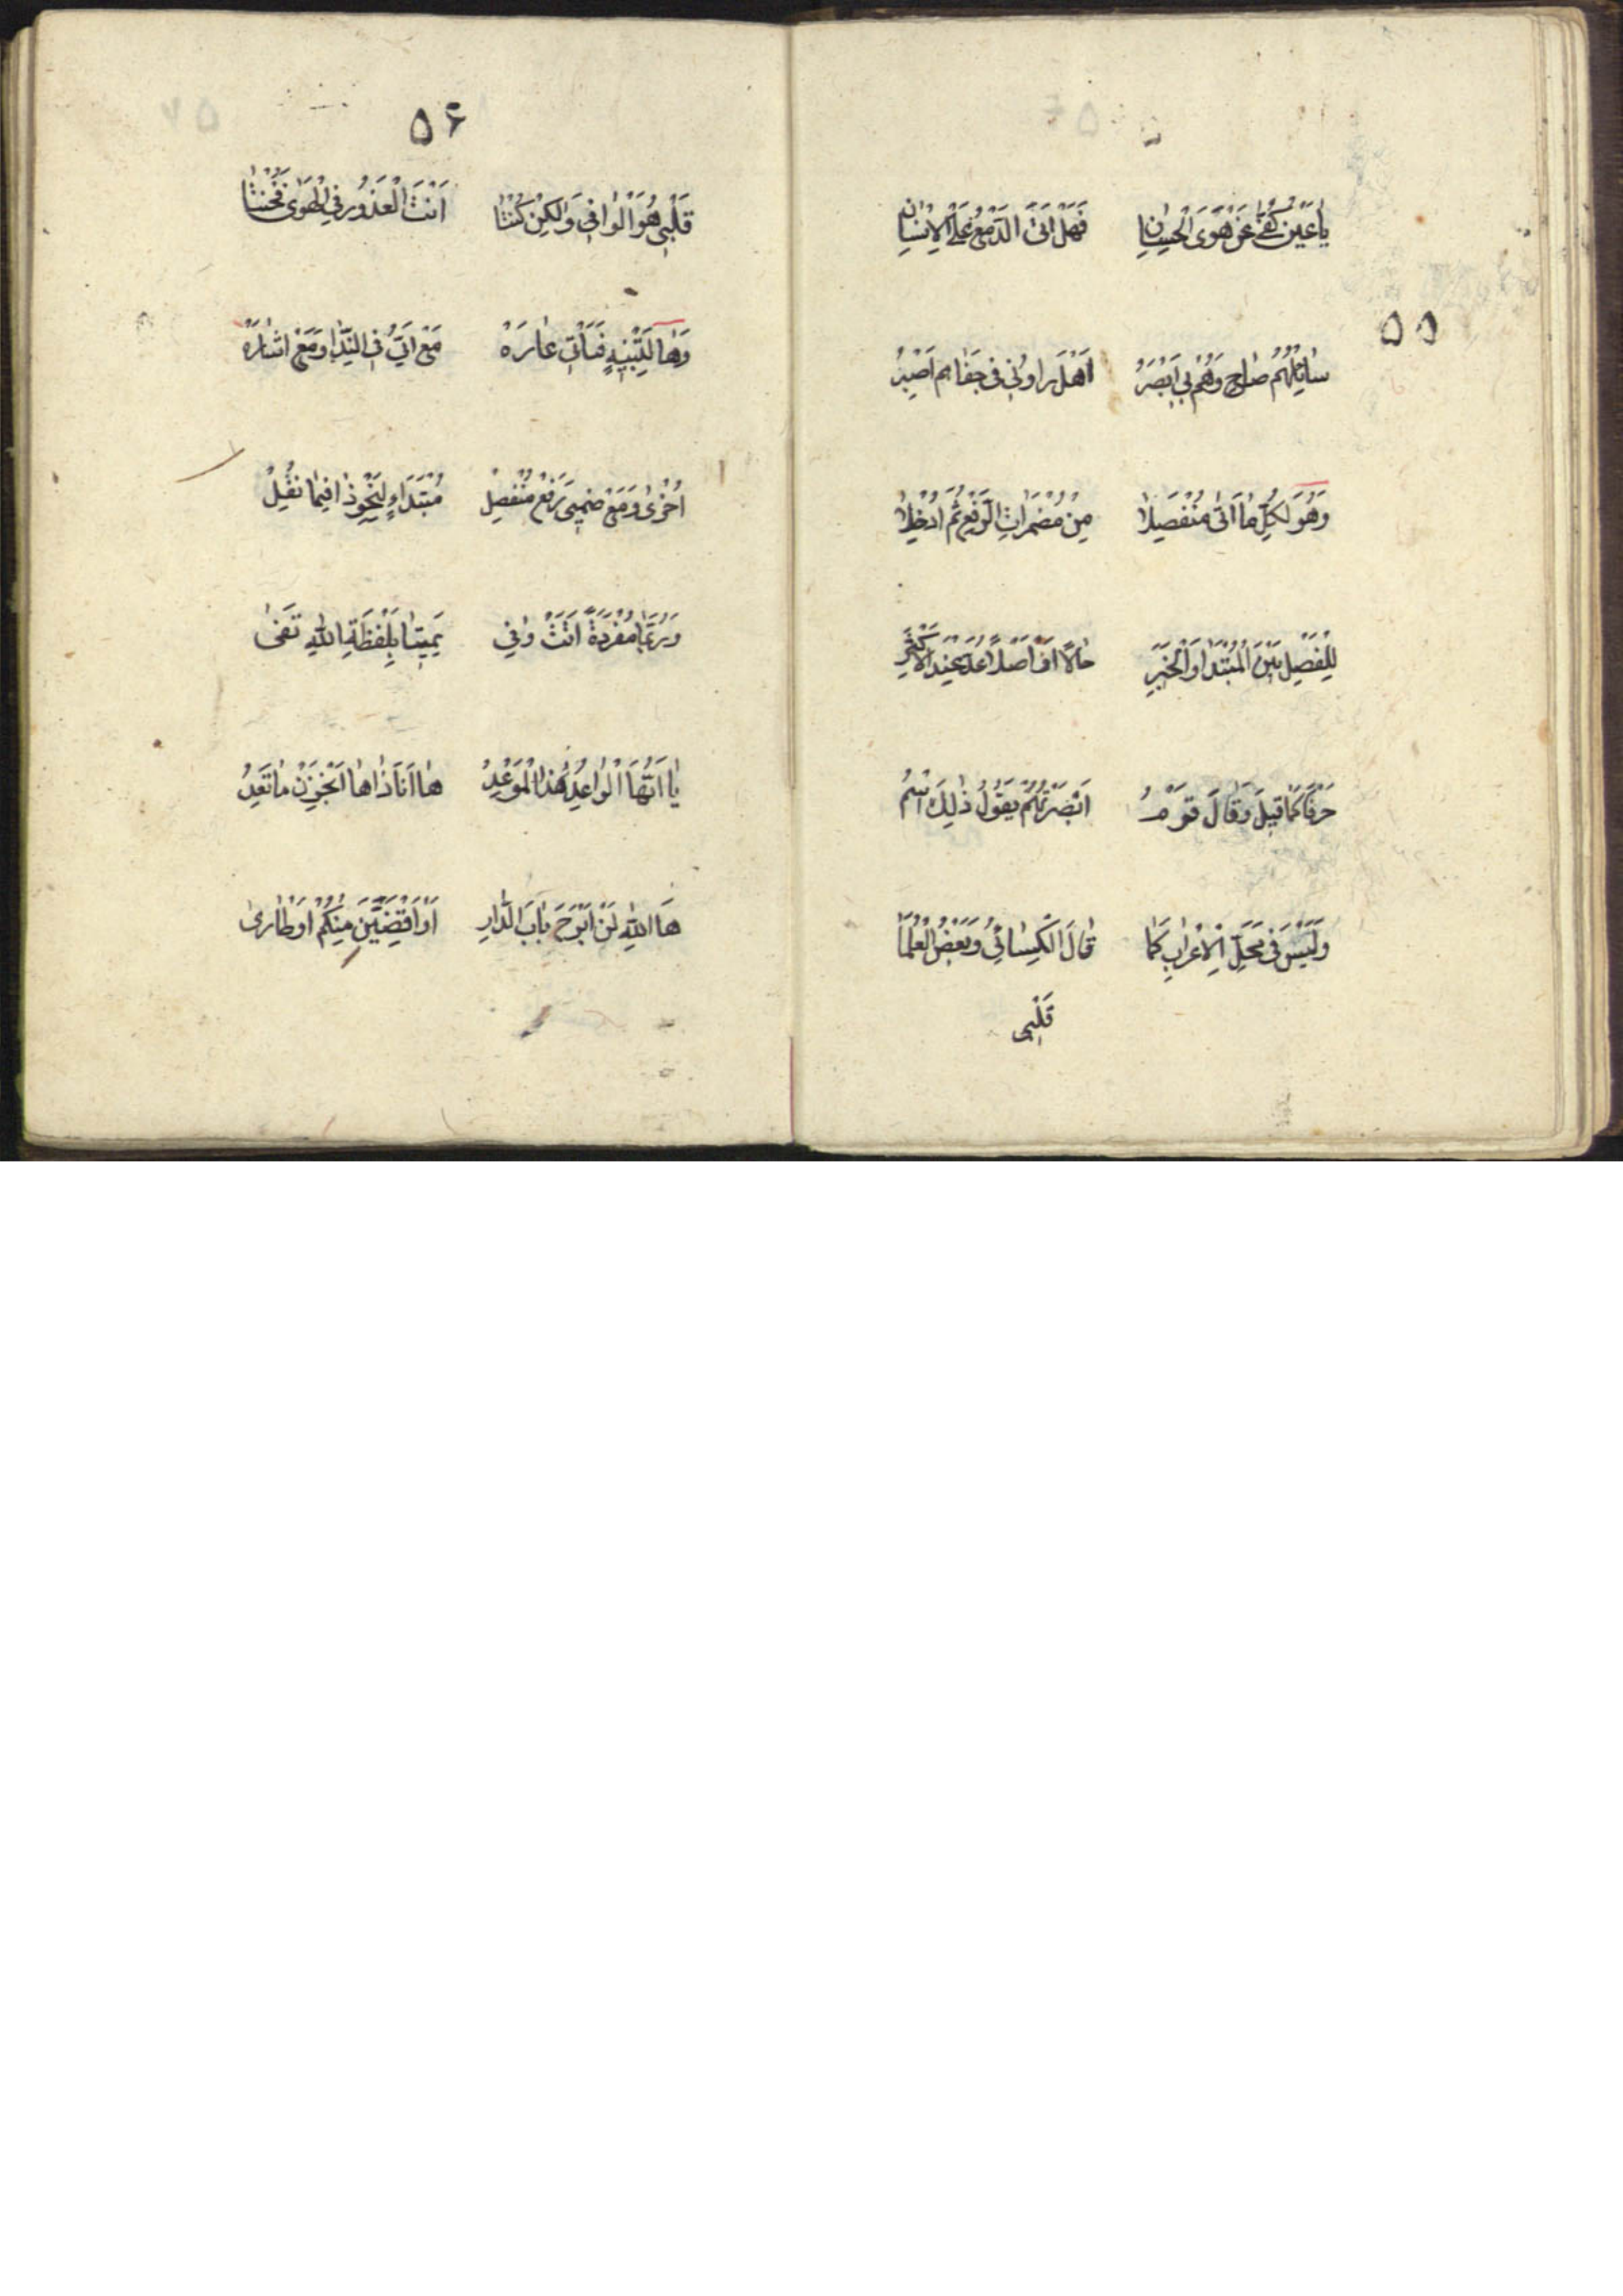 ۵۵
يٰا عَيْنُ كُفّي عَنْ هَوَى الْحِسٰانِ فَهَلْ اَتىٰ الدَّمْعُ عَلَى الْاِنْسٰانِ
سٰائِلْهُمُ صٰاحِ وَهُمْ بي اَبْصَرُ اَهَلْ راوني في جَفٰاهم اَصْبِرُ
وَهُوَ لِكُلِّ مٰا اَتىٰ مُنْفَصِلاٰ مِنْ مُضْمَرٰاتِ الرَّفْعِ ثُمَّ اُدْخِلاٰ
لِلْفَصْلِ بَيْنَ الْمُبْتَدَا وَالْخَبَرِ حٰالاً اَوْ اَصْلاً عُدَّ عِنْدَ الْاَكْثَرِ
حَرْفًا كَمٰا قيلَ وَقٰالَ قَوْمُ اَبْصَرْتُهُمْ يَقُولُ ذٰلِكَ اسْمُ
وَلَيْسَ في مَحَلِّ الْاِعْرٰابِ كَمٰا قٰالَ الْكِسٰائِيُّ وَبَعْضُ الْعُلَمٰا
قَلْبي
۵۶
قَلْبي هُوَ الْوٰافي وَلٰكِنْ كُنْتٰا اَنْتَ الْعَذُورَ فِي الْهَوىٰ فَخُنْتٰا
وَهٰا لِتَنْبيهٍ فَتَأْتي عٰارَهْ مَعْ اَيُّ فِي النِّدٰا وَمَعْ اِشٰارَهْ
اُخْرىٰ وَمَعْ ضَميرِ رَفْعٍ مُنْفَصِلْ مُبْتَدَاءٍ لِنَحْوِ ذٰا فيمٰا نُقِلْ
وَرُبَّمٰا مُفْرَدَةً اَتَتْ وَفي يَمينِنٰا بِلَفْظَةِ اللهِ تَفي
يٰا اَيُّهَا الْوٰاعِدُ هٰذَا الْمَوْعِدُ هٰا اَنَا ذٰا هٰا اَنْجِزَنْ مٰا تَعِدُ
هَا اللهِ لَنْ اَبْرَحَ بٰابَ الدّٰارِ اَوْ اَقْضِيَنَّ مِنْكُمُ اَوْطٰاري